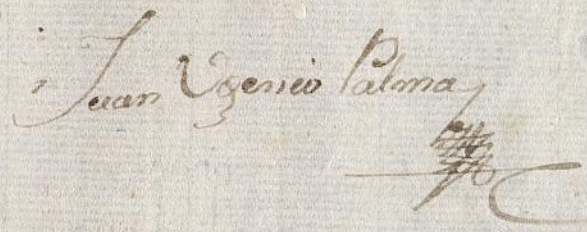 Juan Ugenio Palma